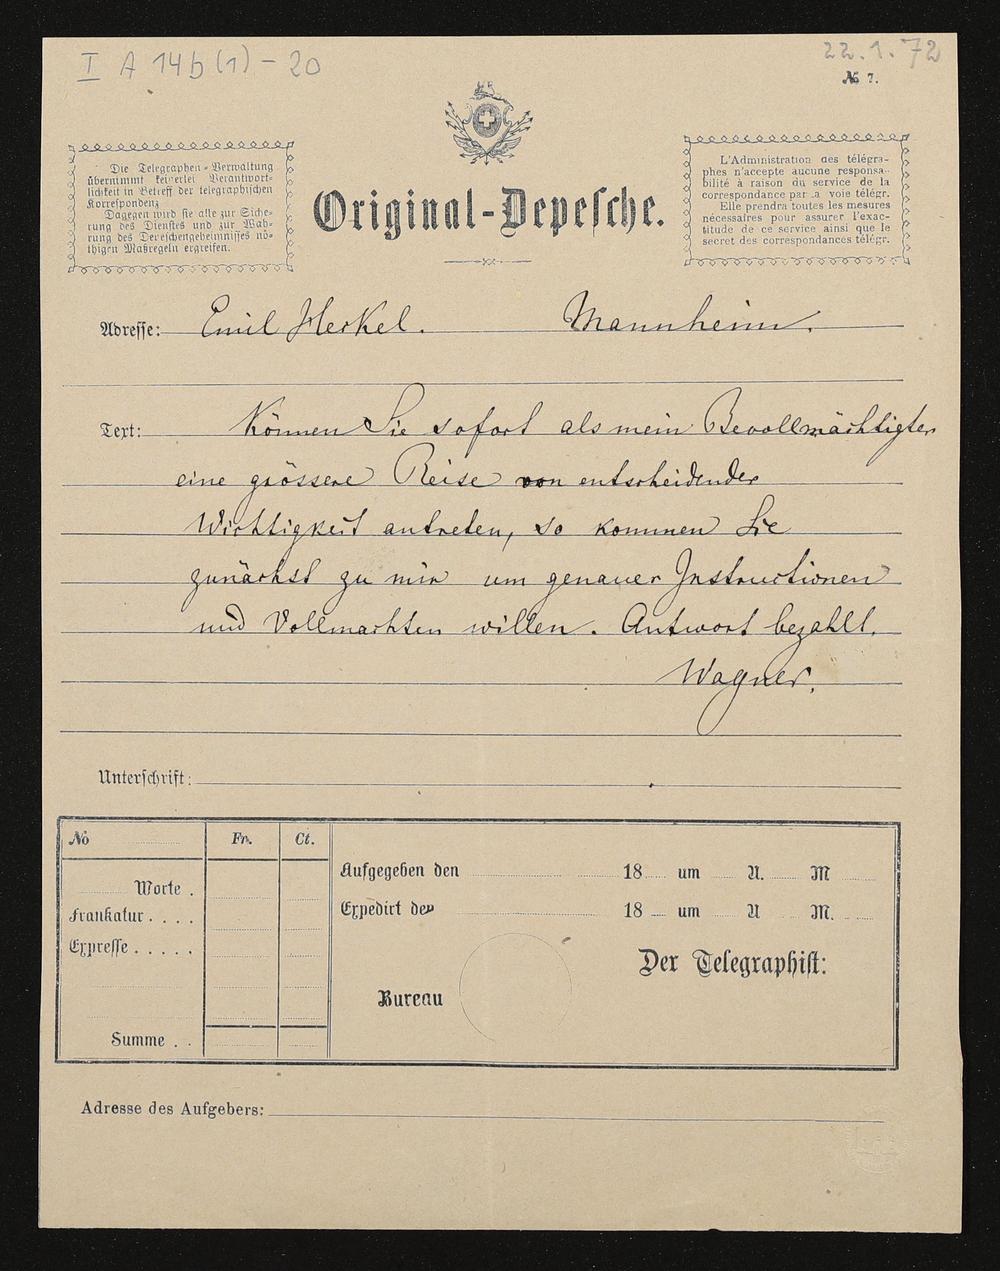 I A 14b(1) - 20
22.1.72
№ 7.
Die Telegraphen-Verwaltung
übernimmt keinerlei Verantwort-
lichkeit in Betreff der telegraphischen
Korrespondenz
Dagegen wird sie alle zur Siche-
rung des Dienstes und zur Wah-
rung des Depeschengeheimnisses nö-
thigen Maßregeln ergreifen.
Original-Depesche.
L'Administration des télégra-
phes n'accepte aucune responsa-
bilité à raison du service de la
correspondance par la voie télégr.
Elle prendra toutes les mesures
nécessaires pour assurer l'exac-
titude de ce service ainsi que le
secret des correspondances télégr.
Adresse: Emil Heckel. Mannheim.
Text: Können Sie sofort als mein Bevollmächtigter
eine grössere Reise von entscheidender
Wichtigkeit antreten, so kommen Sie
zunächst zu mir um genauer Instructionen
und Vollmachten willen. Antwort bezahlt.
Wagner.
Unterschrift:
No Fr. Ct.
Worte .
Frankatur . . . .
Expresse . . . . .
Summe . .
Aufgegeben den 18 um U. M
Expedirt den 18 um U M.
Der Telegraphist:
Bureau
Adresse des Aufgebers: